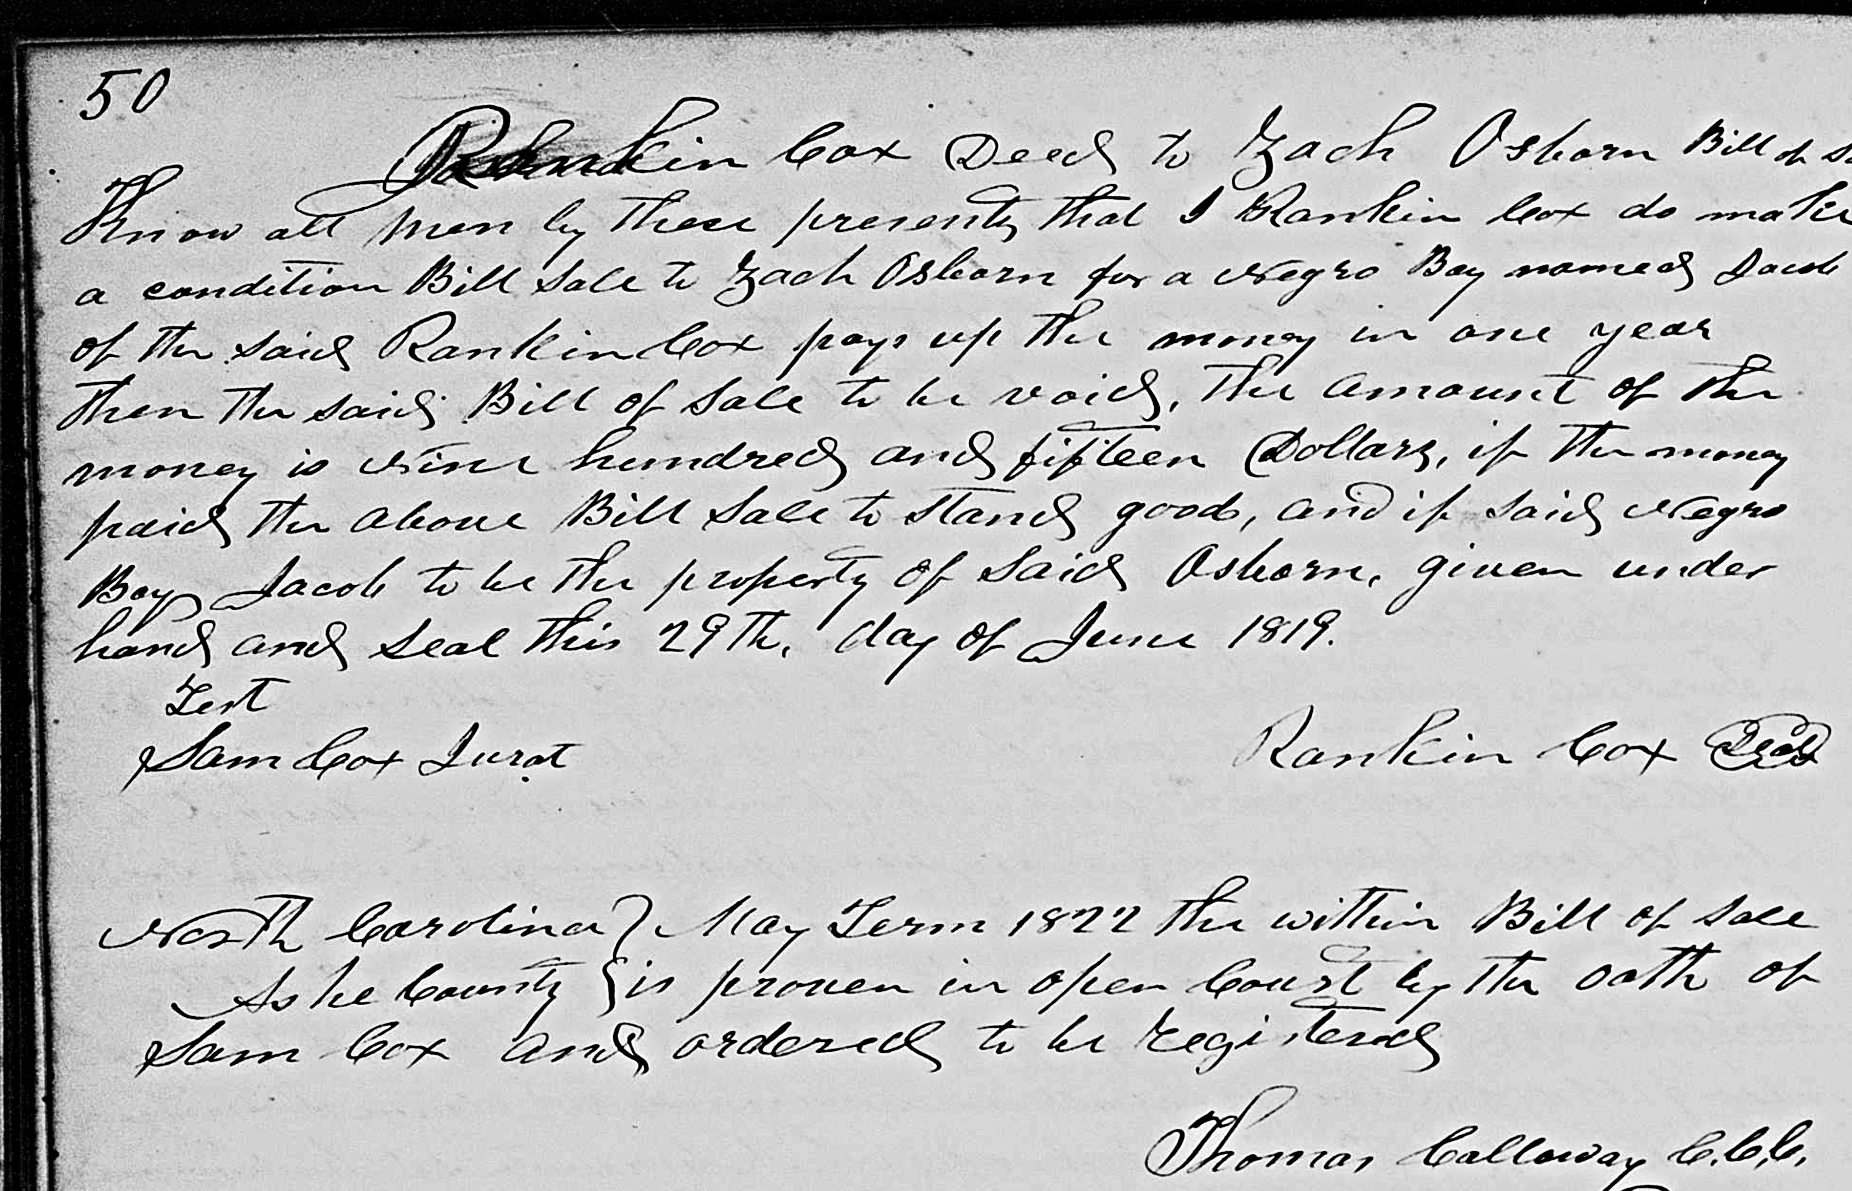 50
Rankin Cox Deed to Zach Osborn Bill of
Know all men by these presents that I Rankin Cox do make
a condition Bill Sale to Zach Osborn for a Negro Boy named Jacob
of the said Rankin Cox pays up the money in one year
then the said Bill of Sale to be void, the amount of the
money is Nine hundred and fifteen Dollars, if the money
paid the above Bill Sale to stand good, and if said Negro
Boy Jacob to be the property of Said Osborn, given under
hand and seal this 29th, day of June 1819.
Test
Sam Cox Jurat
Rankin Cox Seal
North Carolina } May Term 1822 the within Bill of Sale
Ashe County } is proven in open Court by the oath of
Sam Cox and ordered to be registered
Thomas Calloway C.C.C.